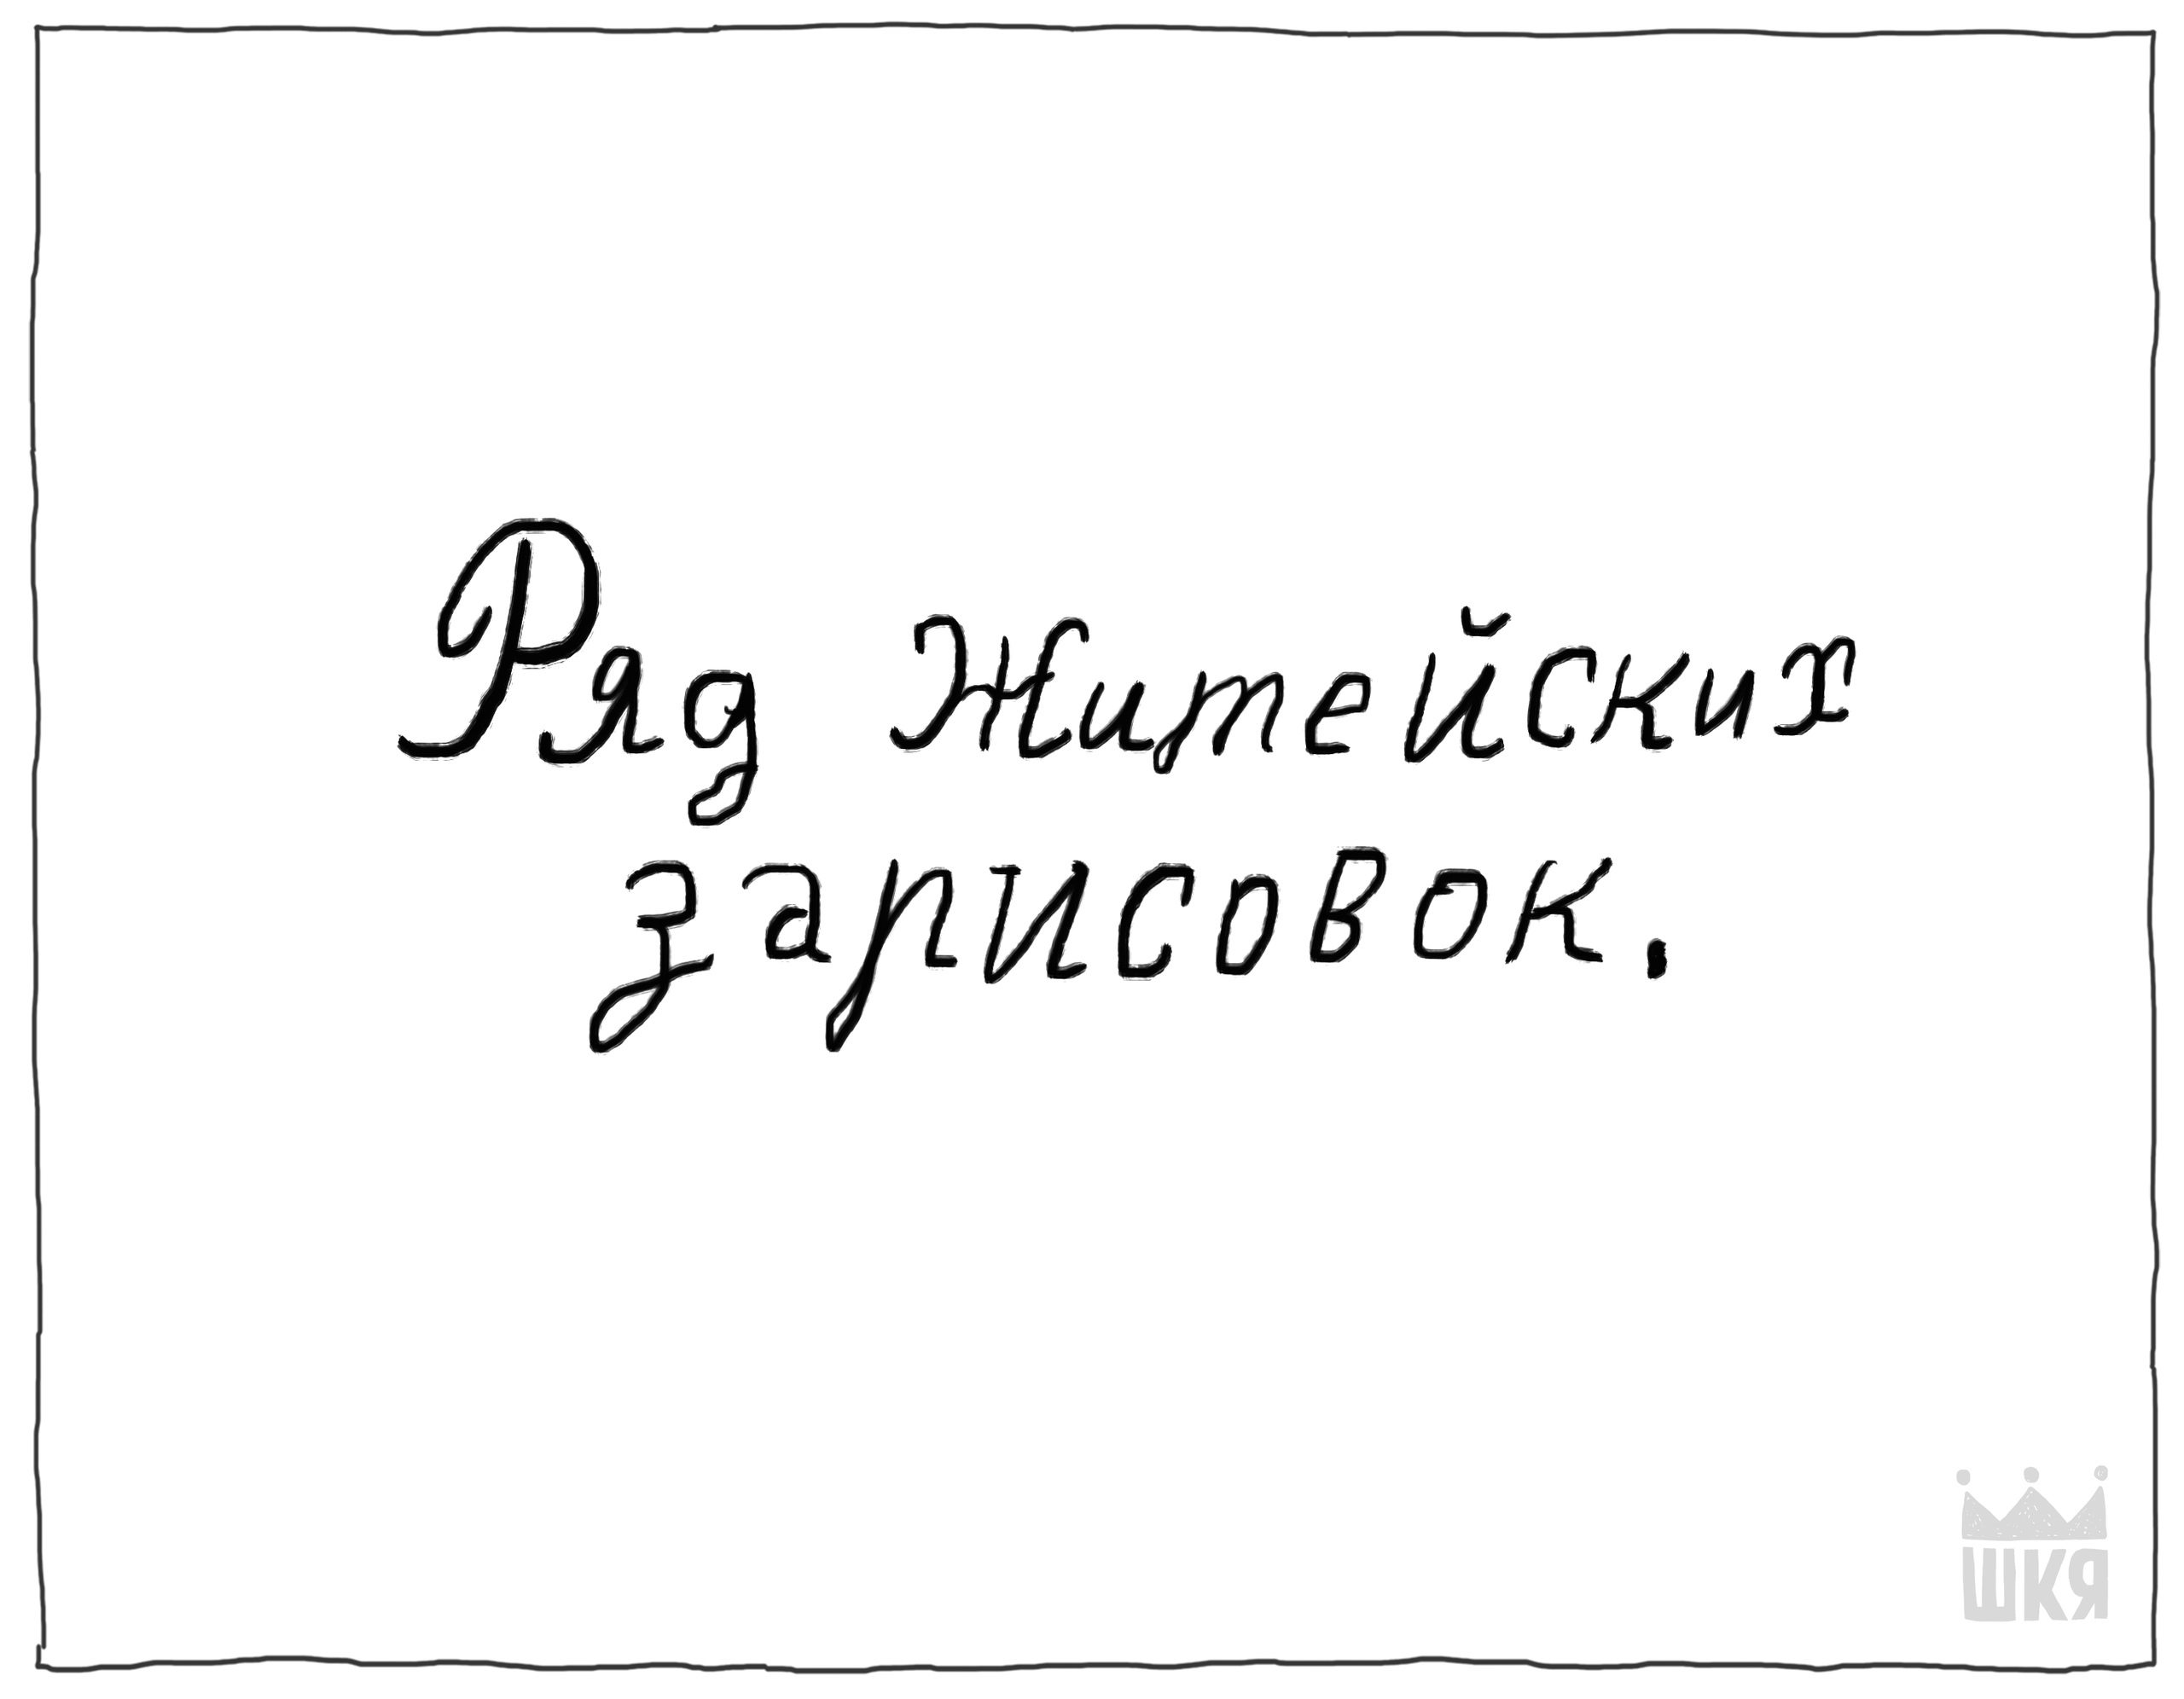 Ряд Житейских
зарисовок.
ШКЯ